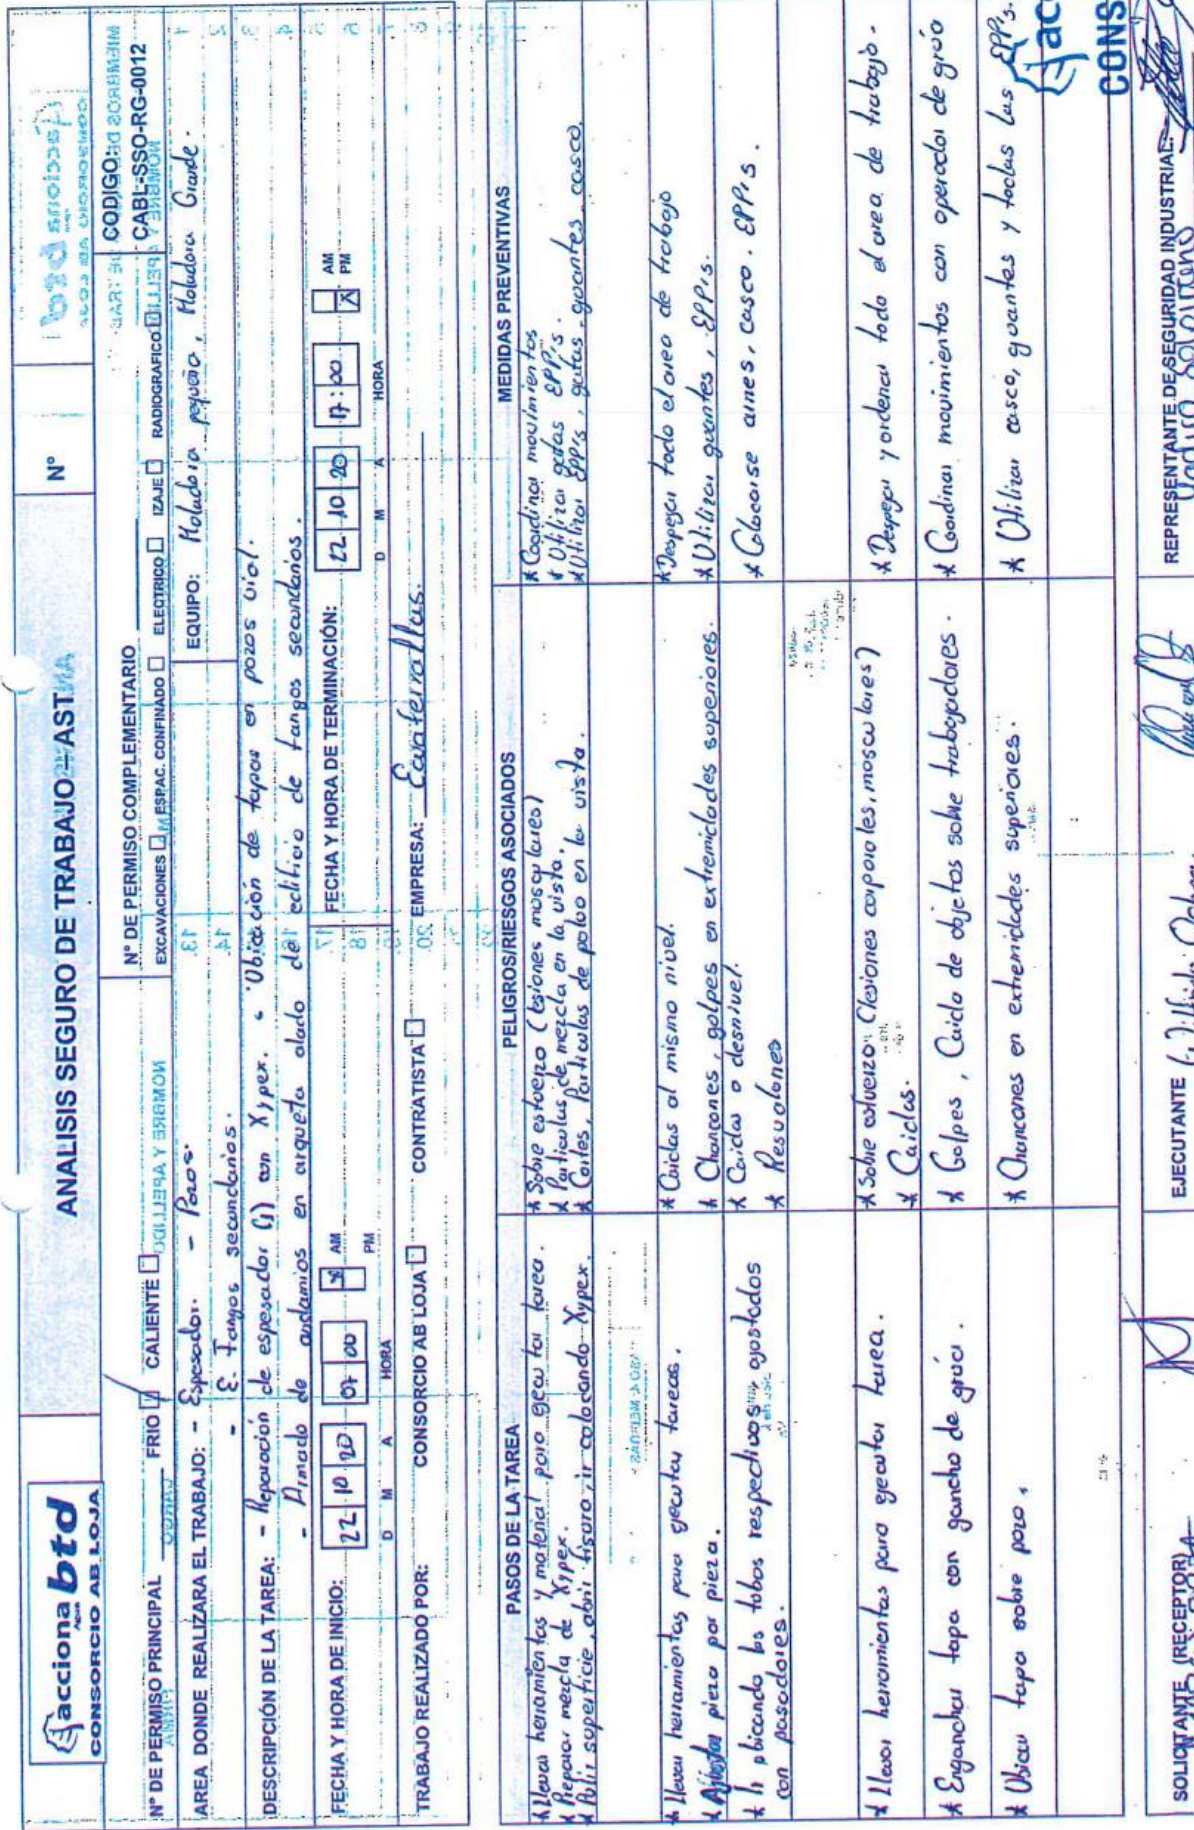 acciona btd
AGUA
CONSORCIO AB LOJA
ANALISIS SEGURO DE TRABAJO – AST
N°
N° DE PERMISO PRINCIPAL FRIO CALIENTE
N° DE PERMISO COMPLEMENTARIO
EXCAVACIONES ESPAC. CONFINADO ELECTRICO IZAJE RADIOGRAFICO
CODIGO:
CABL-SSO-RG-0012
AREA DONDE REALIZARA EL TRABAJO: - Espesador. - Pozos.
- E. Fangos secundarios.
EQUIPO: Moladora pequeña, Moladora Grande.
DESCRIPCIÓN DE LA TAREA: - Reparacion de espesador (1) con Xypex. Ubicación de tapas en pozos vial.
- Armado de andamios en arqueta alado de edificio de fangos secundarios.
FECHA Y HORA DE INICIO: 22 10 20 07 00 X AM
PM
D M A HORA
FECHA Y HORA DE TERMINACIÓN: 22 10 20 17:00 AM
X PM
D M A HORA
TRABAJO REALIZADO POR: CONSORCIO AB LOJA CONTRATISTA EMPRESA:
PASOS DE LA TAREA
PELIGROS/RIESGOS ASOCIADOS
MEDIDAS PREVENTIVAS
* Llevar herramientas y material para ejecutar tarea.
* Preparar mezcla de Xypex.
* Pulir superficie, abrir fisura, ir colocando Xypex.
* Sobre esfuerzo (lesiones musculares)
* Particulas de mezcla en la vista.
* Cortes, Particulas de polvo en la vista.
* Coordinar movimientos
* Utilizar gafas EPP's.
* Utilizar EPP's, gafas, guantes, casco.
* Llevar herramientas para ejecutar tareas.
* Caidas al mismo nivel.
* Despejar todo el area de trabajo
* Ajustar pieza por pieza.
* Chancones, golpes en extremidades superiores.
* Utilizar guantes, EPP's.
* Ir ubicando los tobos respectivos ajustados
con pasadores.
* Caidas a desnivel.
* Resvalones
* Colocarse arnes, casco. EPP's.
* Llevar herramientas para ejecutar tarea.
* Sobre esfuerzo (lesiones corporales, musculares)
* Caidas.
* Despejar y ordenar todo el area de trabajo.
* Enganchar tapa con gancho de grúa.
* Golpes, Caida de objetos sobre trabajadores.
* Coordinar movimientos con operador de grúa
* Ubicar tapa sobre pozo.
* Chancones en extremidades superiores.
* Utilizar casco, guantes y todas las EPP's.
acc
CONS
SOLICITANTE (RECEPTOR)
EJECUTANTE
REPRESENTANTE DE SEGURIDAD INDUSTRIAL: